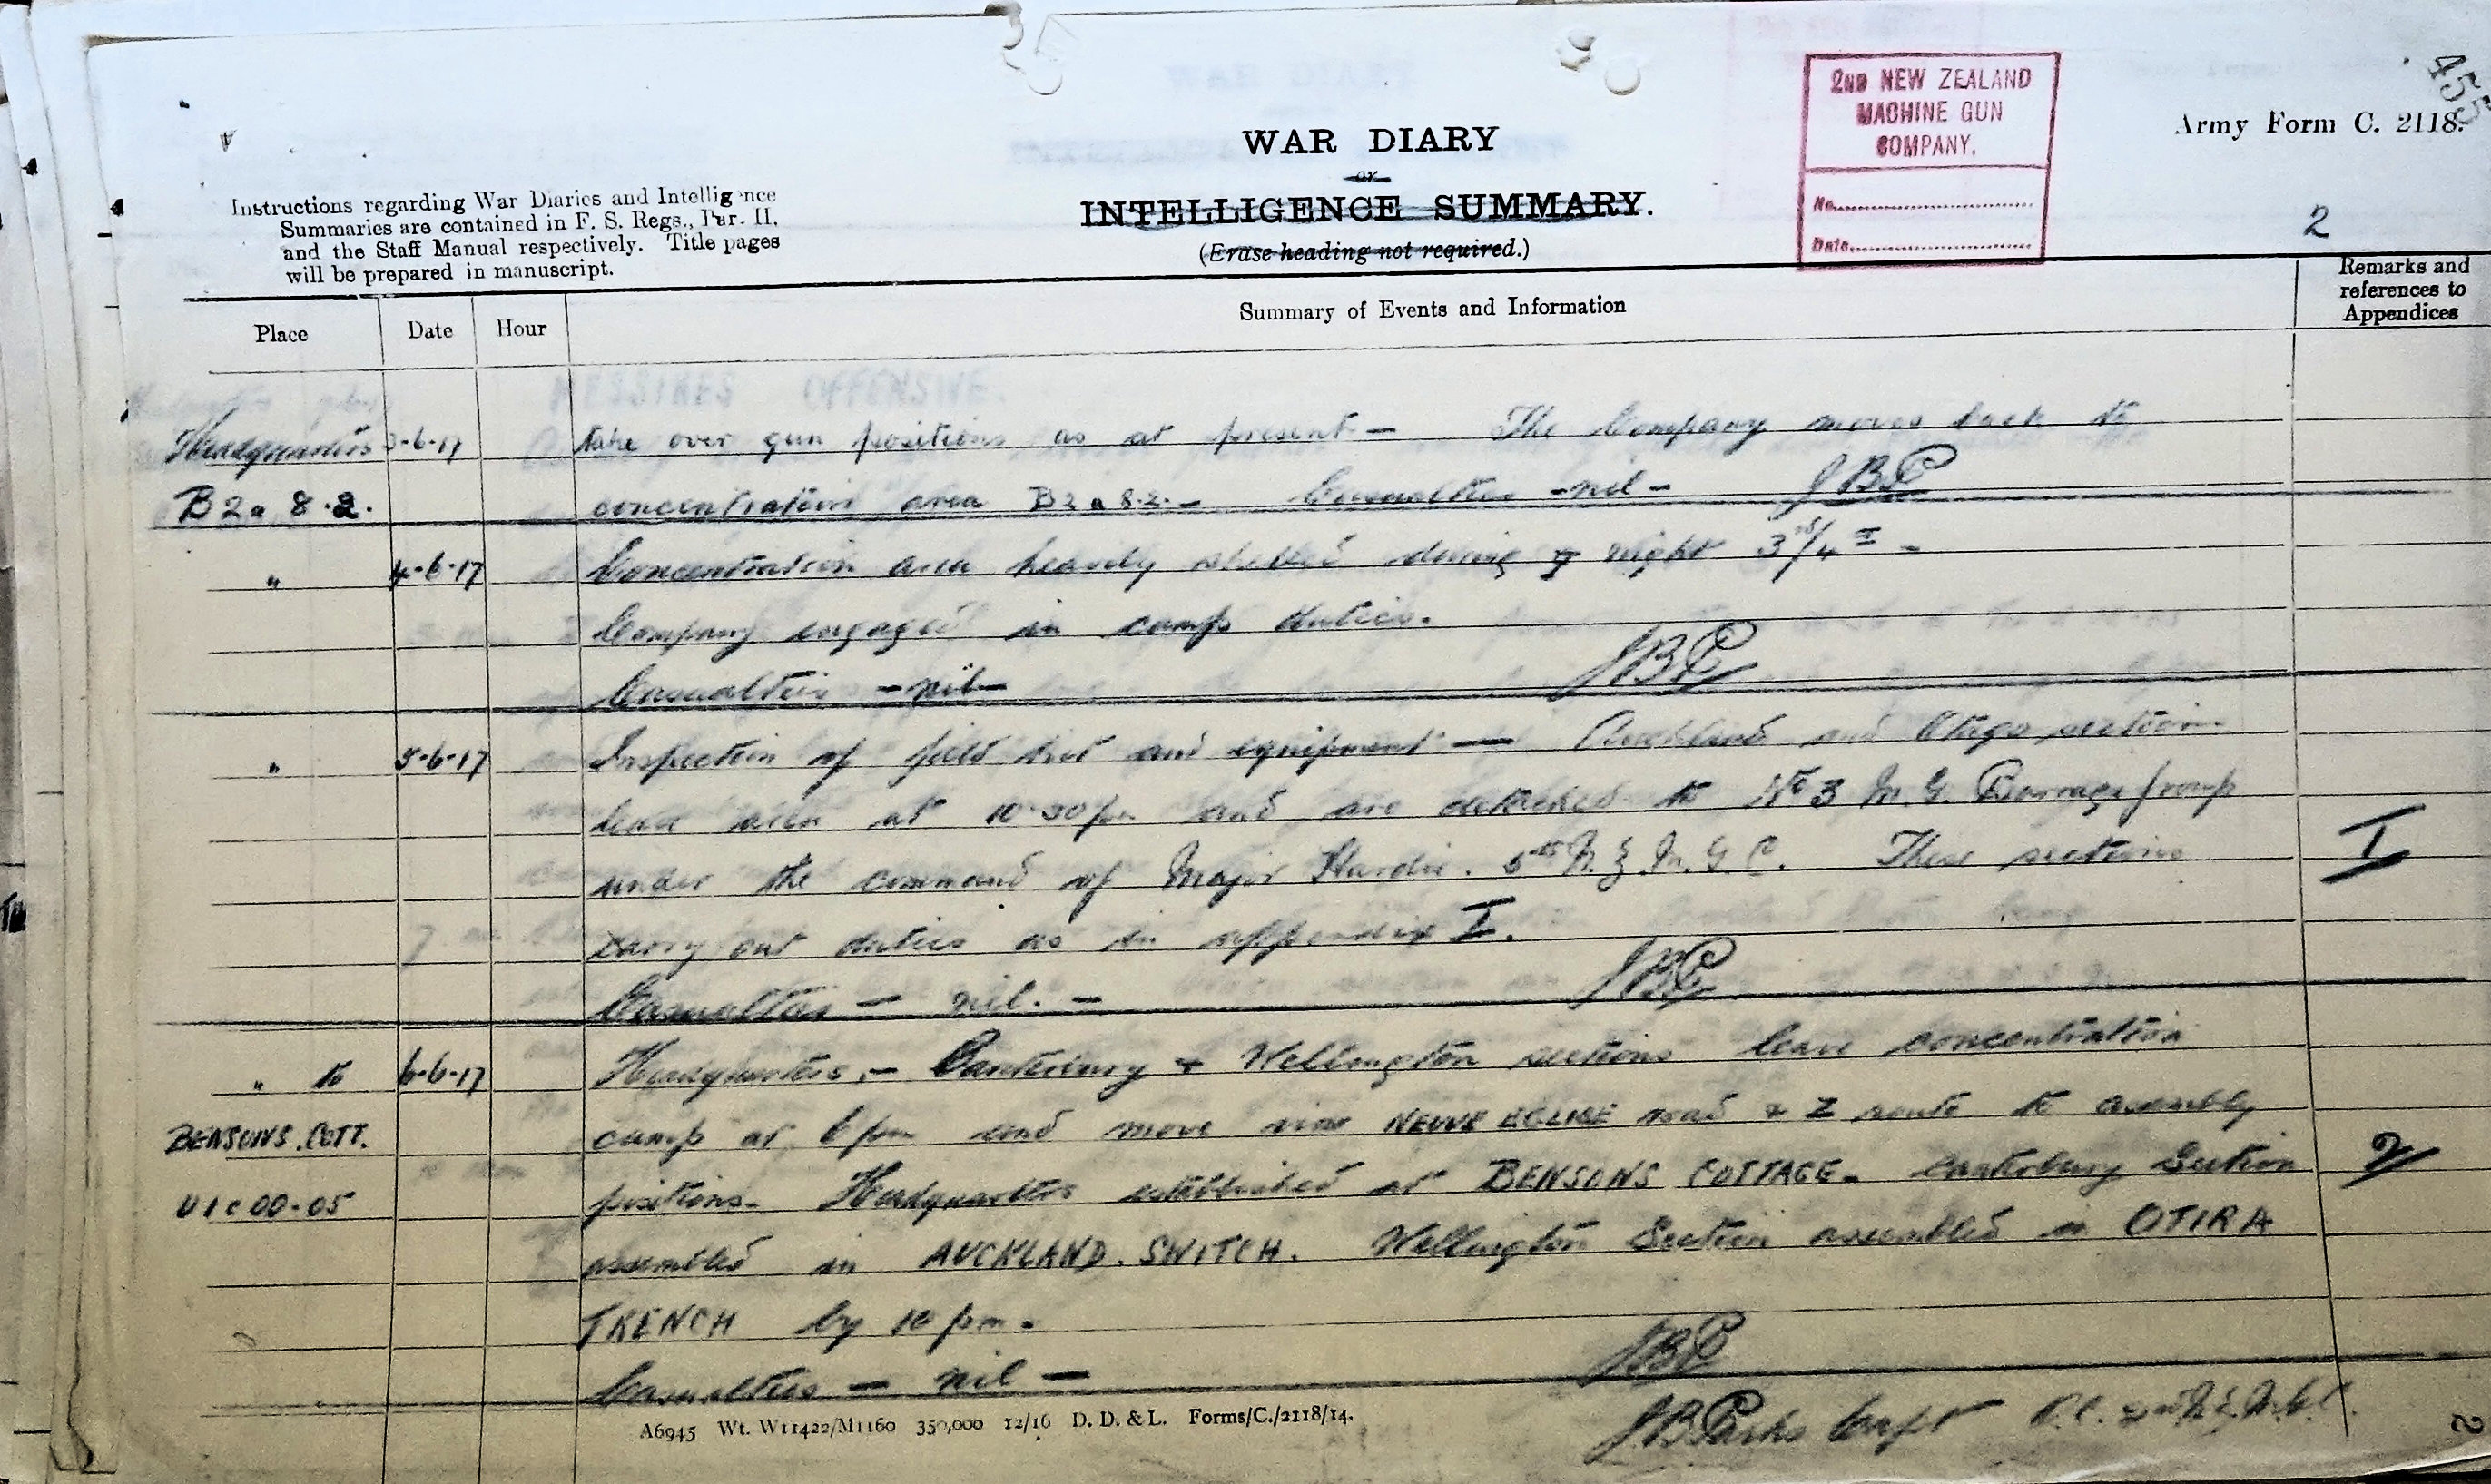 455
2ND NEW ZEALAND
MACHINE GUN
COMPANY.
No.
Date.
Army Form C. 2118.
WAR DIARY
or
INTELLIGENCE SUMMARY.
(Erase heading not required.)
2
Instructions regarding War Diaries and Intelligence
Summaries are contained in F. S. Regs., Par. II.
and the Staff Manual respectively. Title pages
will be prepared in manuscript.
Place Date Hour Summary of Events and Information Remarks and
references to
Appendices
MESSINES OFFENSIVE.
Headquarters 3-6-17 take over gun positions as at present — The Company moves back to
B2a 8.2. concentration area B2a 8.2. — Casualties - nil - JBP
" 4-6-17 Concentration area heavily shelled during ye night 3rd/4th -
Company engaged in camp duties.
Casualties - nil - JBP
" 5-6-17 Inspection of field kit and equipment — Auckland and Otago sections
leave area at 10.30 pm and are detached to No 3 M. G. Barrage Group
under the command of Major Hardie. 5th N. Z. M. G. C. These sections I
carry out duties as in appendix I.
Casualties — nil. — JBP
" to 6-6-17 Headquarters, - Canterbury + Wellington sections leave concentration
BENSONS. COTT. camp at 6 pm and move via NEUVE EGLISE road + Z route to assembly
U1c 00-05 positions. Headquarters established at BENSONS COTTAGE. Canterbury Section 2
assembled in AUCKLAND. SWITCH. Wellington Section assembled in OTIRA
TRENCH by 10 pm.
Casualties — nil — JBP
JB Parks Capt O.C. 2nd N.Z.M.G.C.
A6945 Wt. W11422/M1160 350,000 12/16 D. D. & L. Forms/C./2118/14.
2